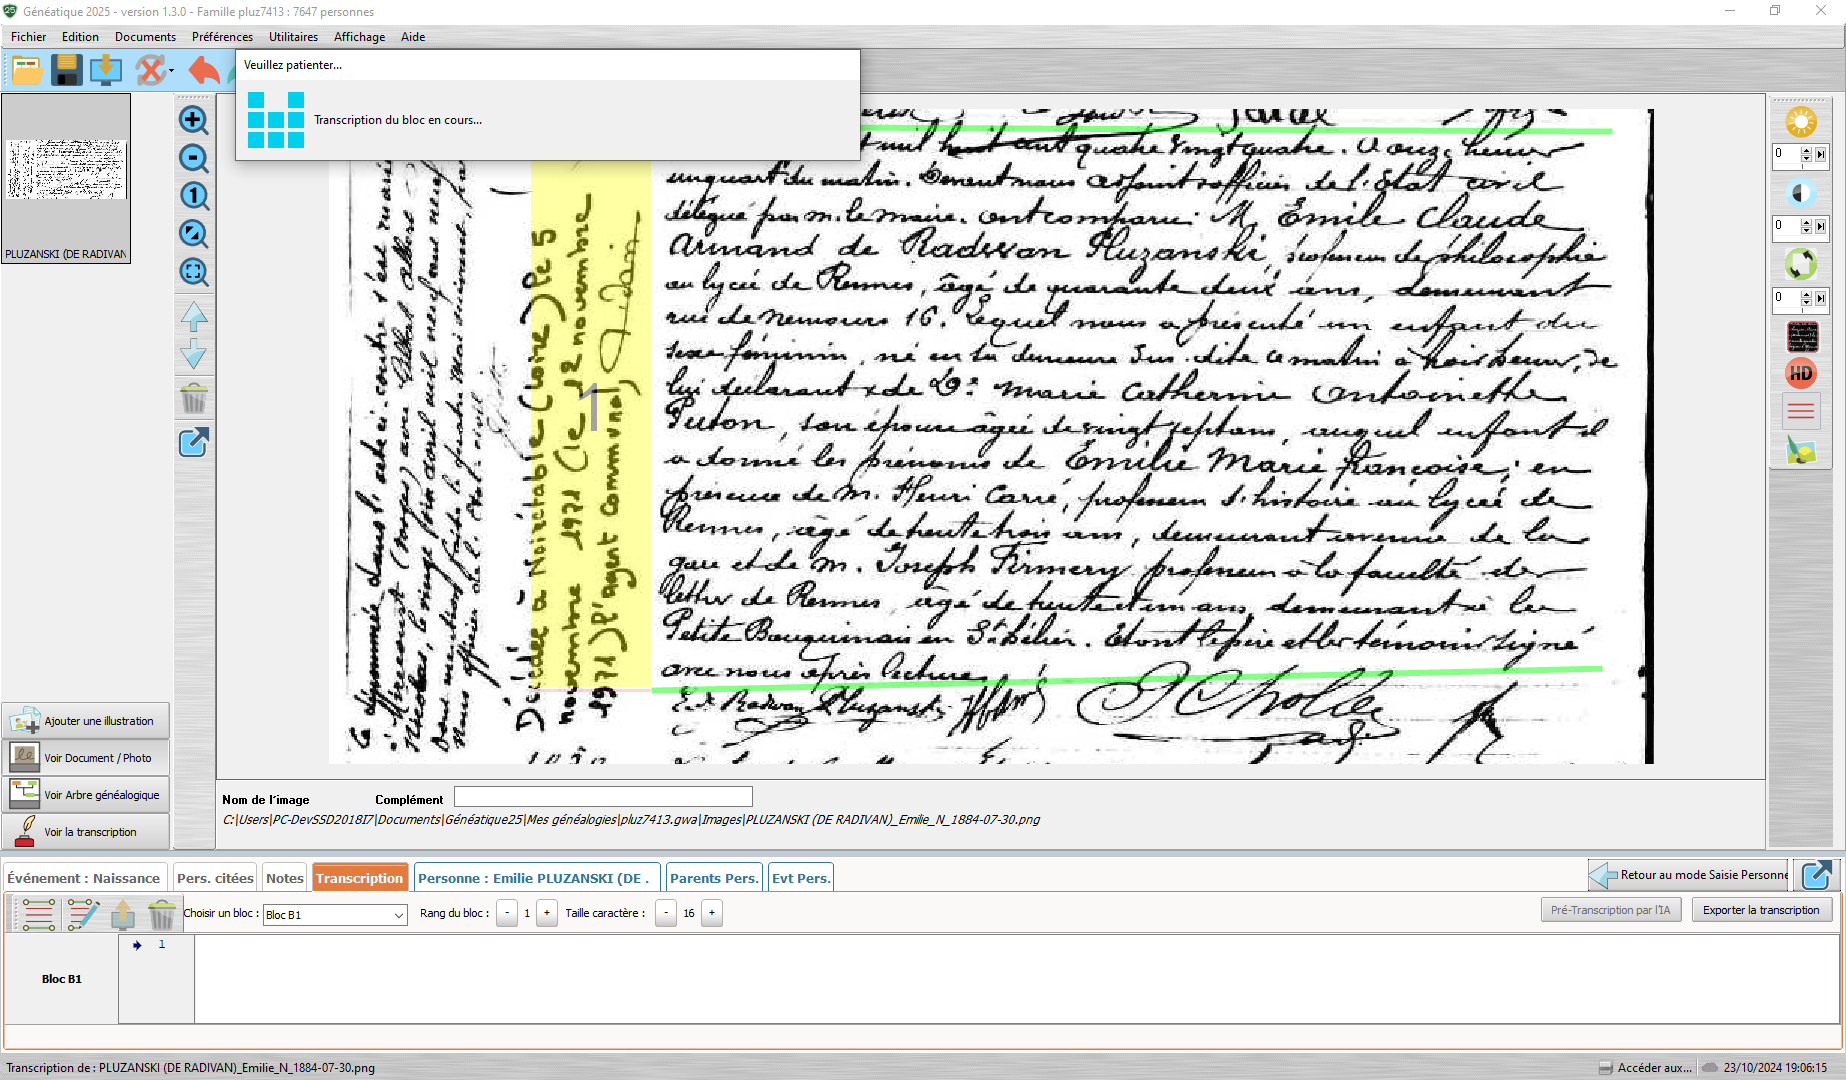 Généatique 2025 - version 1.3.0 - Famille pluz7413 : 7647 personnes
Fichier Edition Documents Préférences Utilitaires Affichage Aide
Veuillez patienter...
Transcription du bloc en cours...
PLUZANSKI (DE RADIVAN
1
Décédée à Noirétable (Loire) le 5
novembre 1971 (le 12 novembre
1971) l'agent communal,
mil huit cent quatre vingt quatre. à onze heures
un quart du matin. Devant nous adjoint officier de l'Etat civil
délégué par m. le maire. ont comparu: M. Emile Claude
Armand de Radwan Pluzanski, professeur de philosophie
au lycée de Rennes, âgé de quarante deux ans, demeurant
rue de Nemours 16. Lequel nous a présenté un enfant du
sexe féminin, né en sa demeure sus dite ce matin à trois heures, de
lui déclarant & de De. Marie Catherine Antoinette
son épouse âgée de vingt sept ans, auquel enfant il
a donné les prénoms de Emilie Marie Françoise; en
présence de M. Henri Carré, professeur d'histoire au lycée de
Rennes, âgé de trente trois ans, demeurant avenue de la
gare et de M. Joseph Firmery professeur à la faculté des
lettres de Rennes, âgé de trente et un ans, demeurant à la
Petite en St Hélier. Et ont le père et les témoins signé
avec nous après lecture
E. de Radwan Pluzanski
0
0
0
HD
Ajouter une illustration
Voir Document / Photo
Voir Arbre généalogique
Voir la transcription
Nom de l'image Complément
C:\Users\PC-DevSSD2018I7\Documents\Généatique25\Mes généalogies\pluz7413.gwa\Images\PLUZANSKI (DE RADIVAN)_Emilie_N_1884-07-30.png
Événement : Naissance Pers. citées Notes Transcription Personne : Emilie PLUZANSKI (DE . Parents Pers. Evt Pers.
Retour au mode Saisie Personne
Choisir un bloc : Bloc B1 Rang du bloc : - 1 + Taille caractère : - 16 +
Pré-Transcription par l'IA Exporter la transcription
1
Bloc B1
Transcription de : PLUZANSKI (DE RADIVAN)_Emilie_N_1884-07-30.png
Accéder aux... 23/10/2024 19:06:15